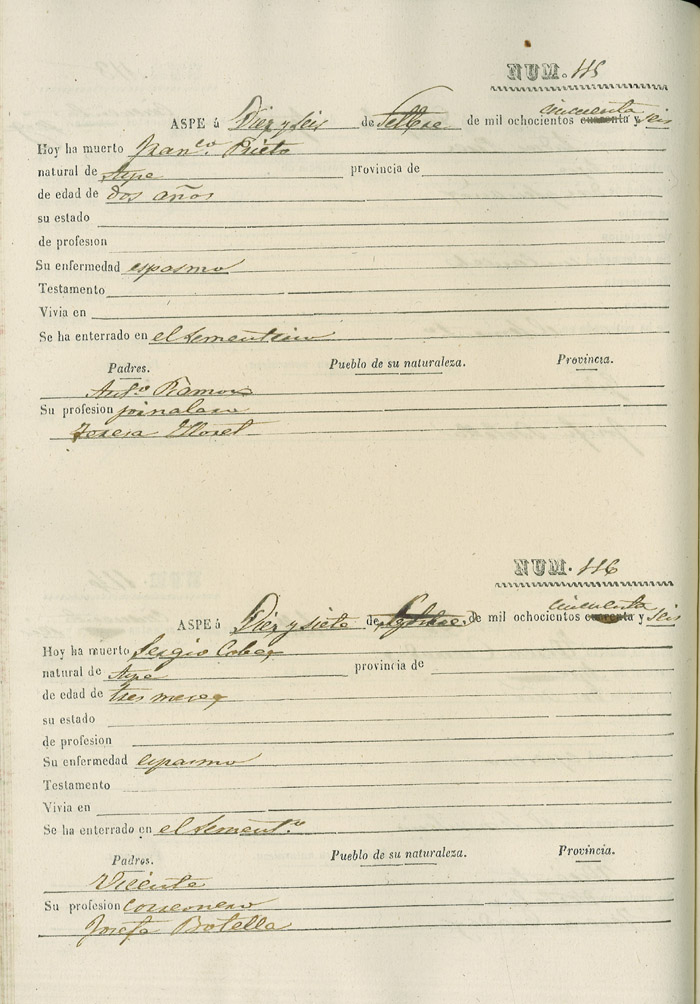 NUM. 115
cincuenta
ASPE á Diez y seis de Setbre de mil ochocientos cuarenta y seis
Hoy ha muerto Franco. Prieto
natural de Aspe provincia de
de edad de dos años
su estado
de profesion
Su enfermedad espasmo
Testamento
Vivia en
Se ha enterrado en el sementerio
Padres. Pueblo de su naturaleza. Provincia.
Anto Ramon
Su profesion jornalero
Teresa Lloret
NUM. 116
cincuenta
ASPE á Diez y siete de de mil ochocientos cuarenta y seis
Hoy ha muerto Sergio
natural de Aspe provincia de
de edad de tres meses
su estado
de profesion
Su enfermedad espasmo
Testamento
Vivia en
Se ha enterrado en el sementº
Padres. Pueblo de su naturaleza. Provincia.
Vicente
Su profesion
Josefa Botella